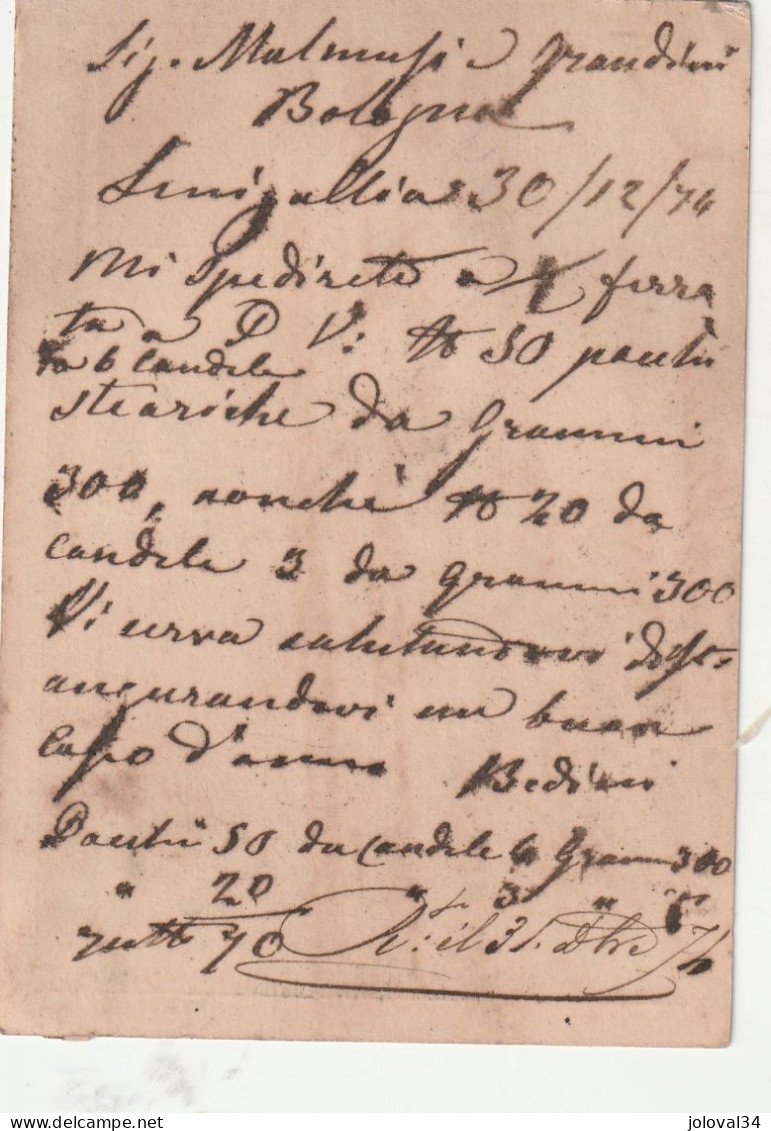 Sig. Malmusi e Grandini
Bologna
Senigallia 30/12/74
Mi Spedirete a 1/2 ferra
ta a P V: N 50 pacchi
da 6 candele
steariche da Grammi
300, nonchè N 20 da
candele 3 da grammi 300
Vi serva salutandovi dist.
augurandovi un buon
capo d'anno Bedini
Pacchi 50 da Candele 6 Grammi 300
" 20 " 3 "
70 R. il 31. Dbre 74
delcampe.net
joloval34